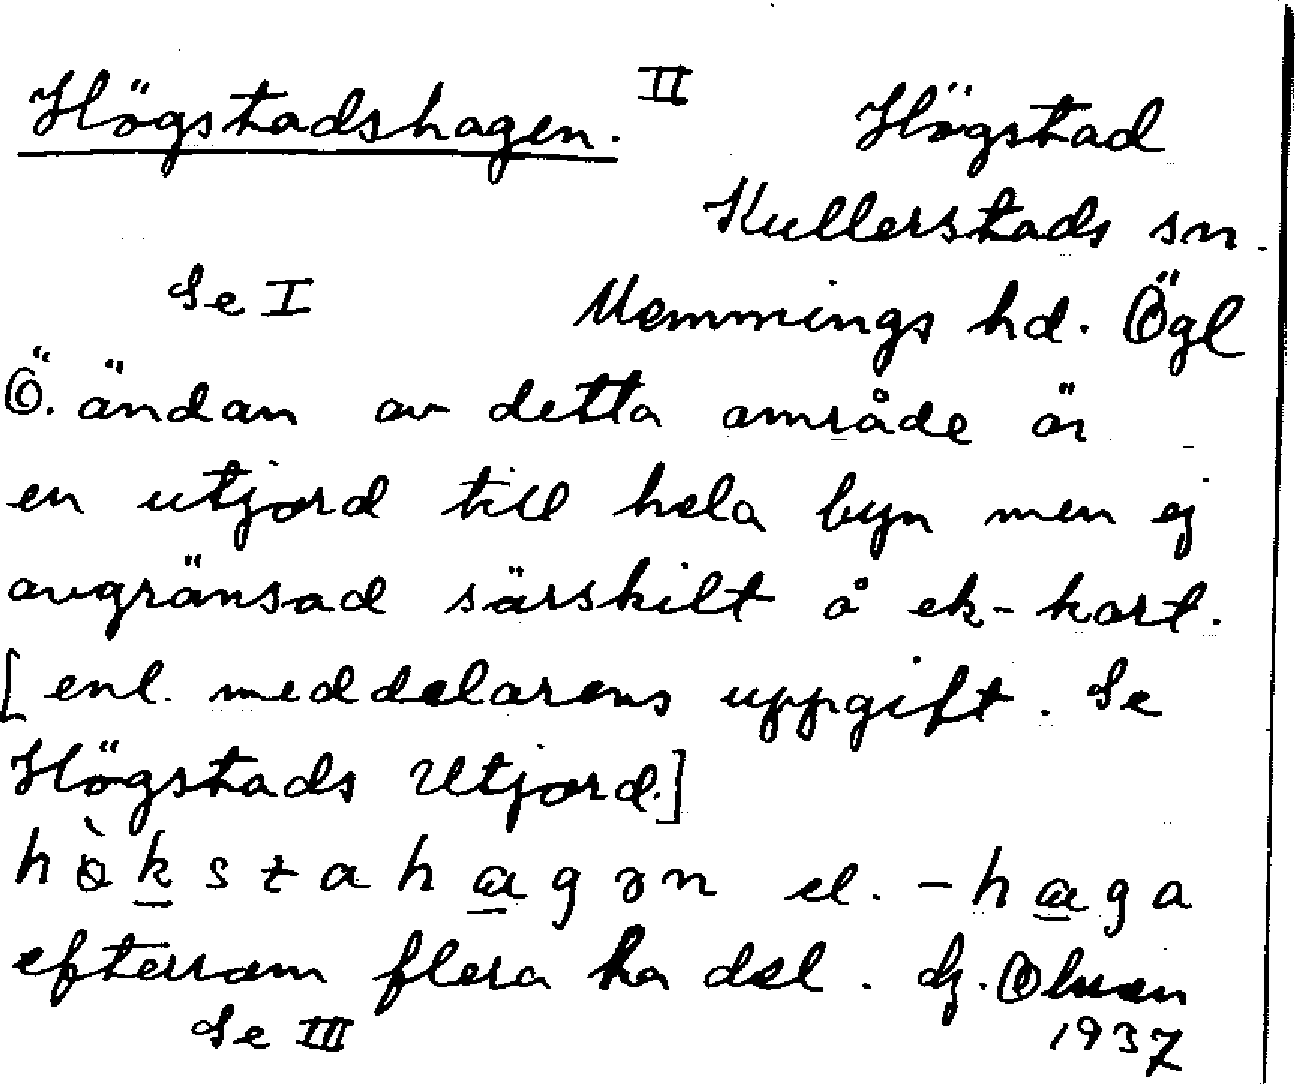 Högstadshagen. II Högstad
Kullerstads sn.
Se I Memmings hd. Ögl
Ö. ändan av detta område är
en utjord till hela byn men ej
avgränsad särskilt å ek-kart.
[enl. meddelarens uppgift. Se
Högstads Utjord.]
hökstahagən el. -haga
eftersom flera ha del.
Se III 1937